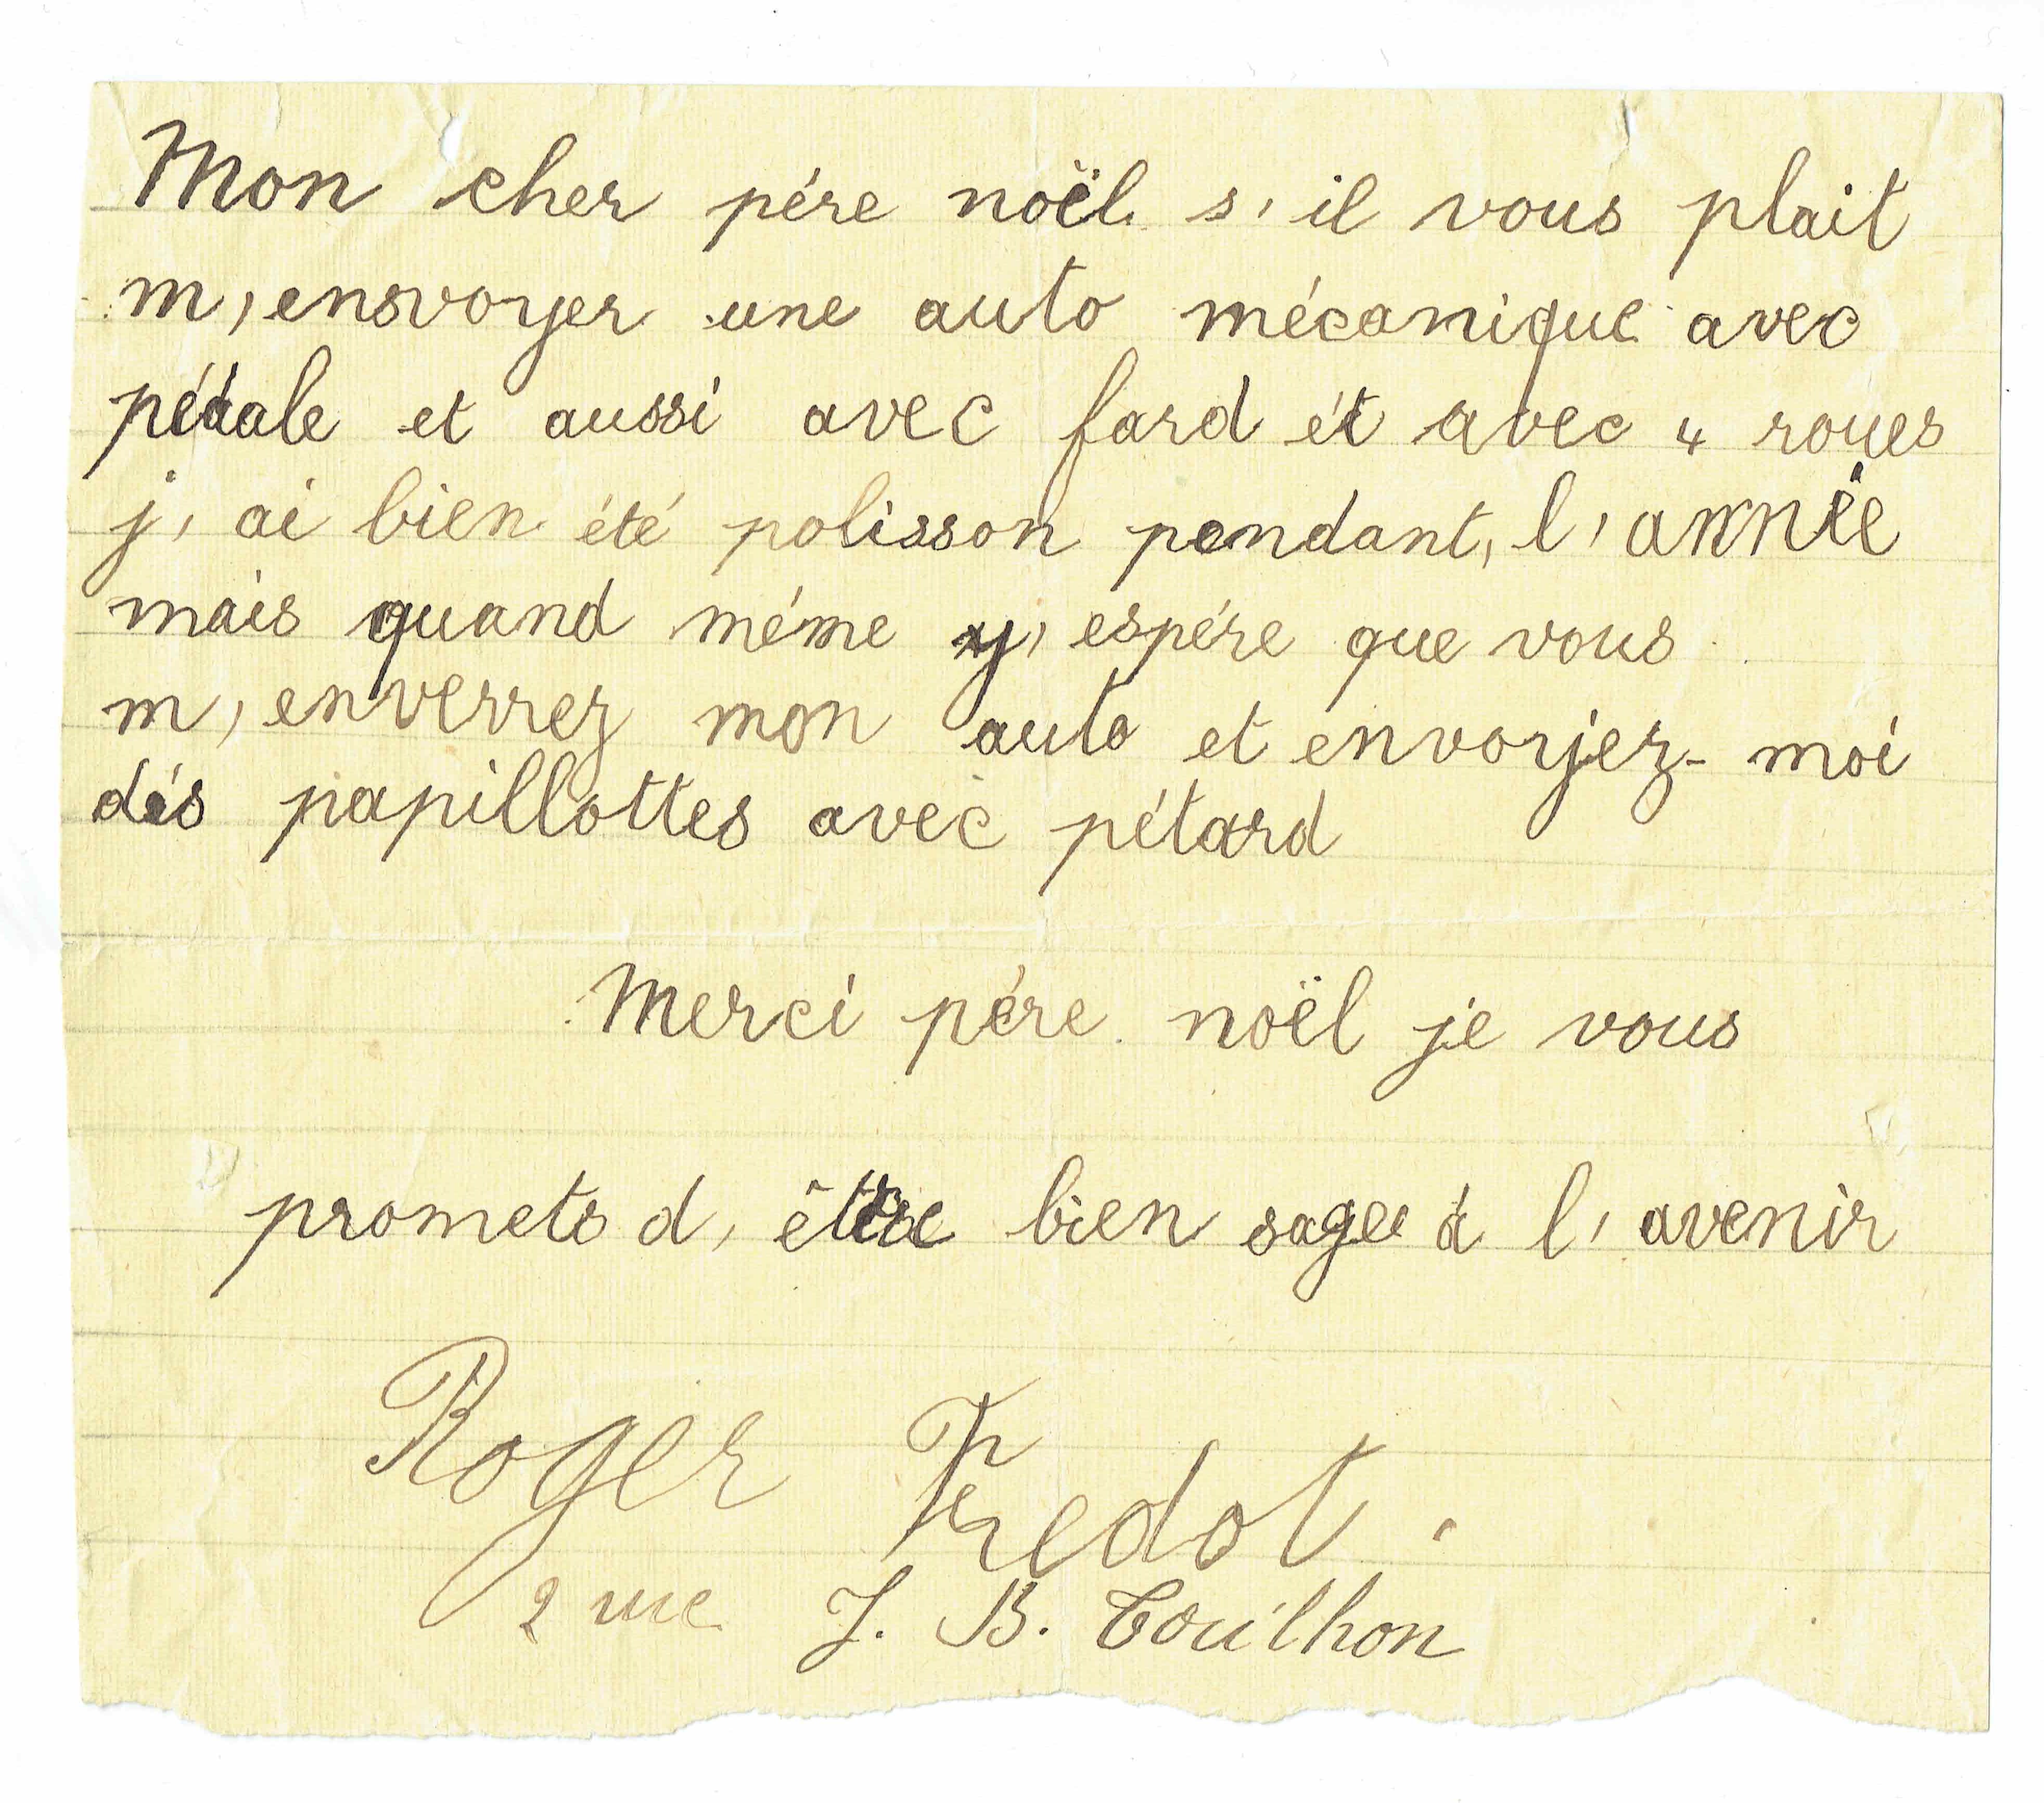 Mon cher pére noël s, il vous plait
m, ensvoyer une auto mécanique avec
pédale et aussi avec fard ét avec 4 roues
j, ai bien été polisson pendant, l, année
mais quand méme j, espére que vous
m, enverrez mon auto et envoyez-moi
dés papillottes avec pétard
Merci pére noël je vous
promets d, être bien sage à l, avenir
Roger Fredot.
2 rue J. B. Couilhon